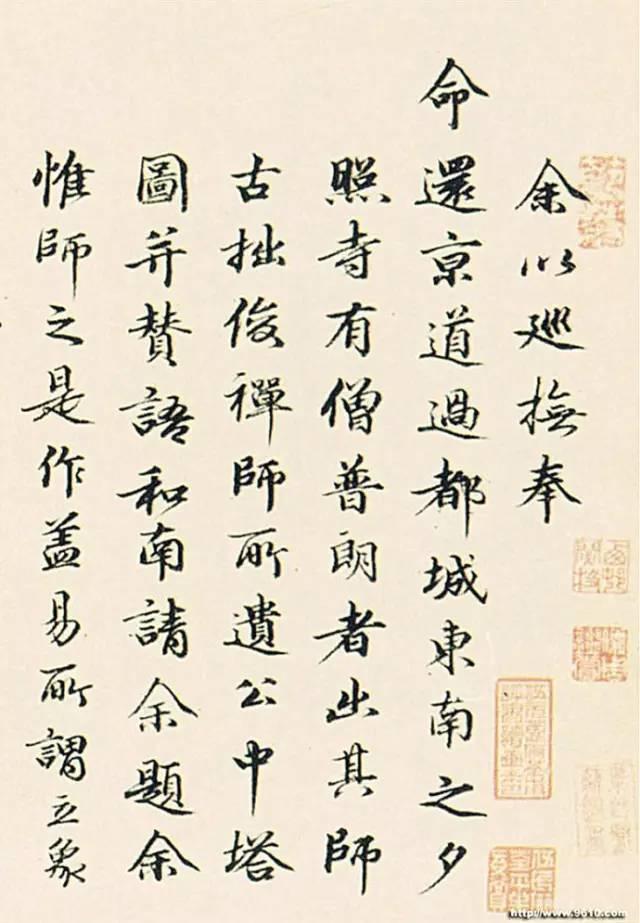 余以廵撫奉
命還京道過都城東南之夕
照寺有僧普朗者出其師
古拙俊禪師所遺公中塔
圖并賛語和南請余題余
惟師之是作葢易所謂立象
http://www.9610.com